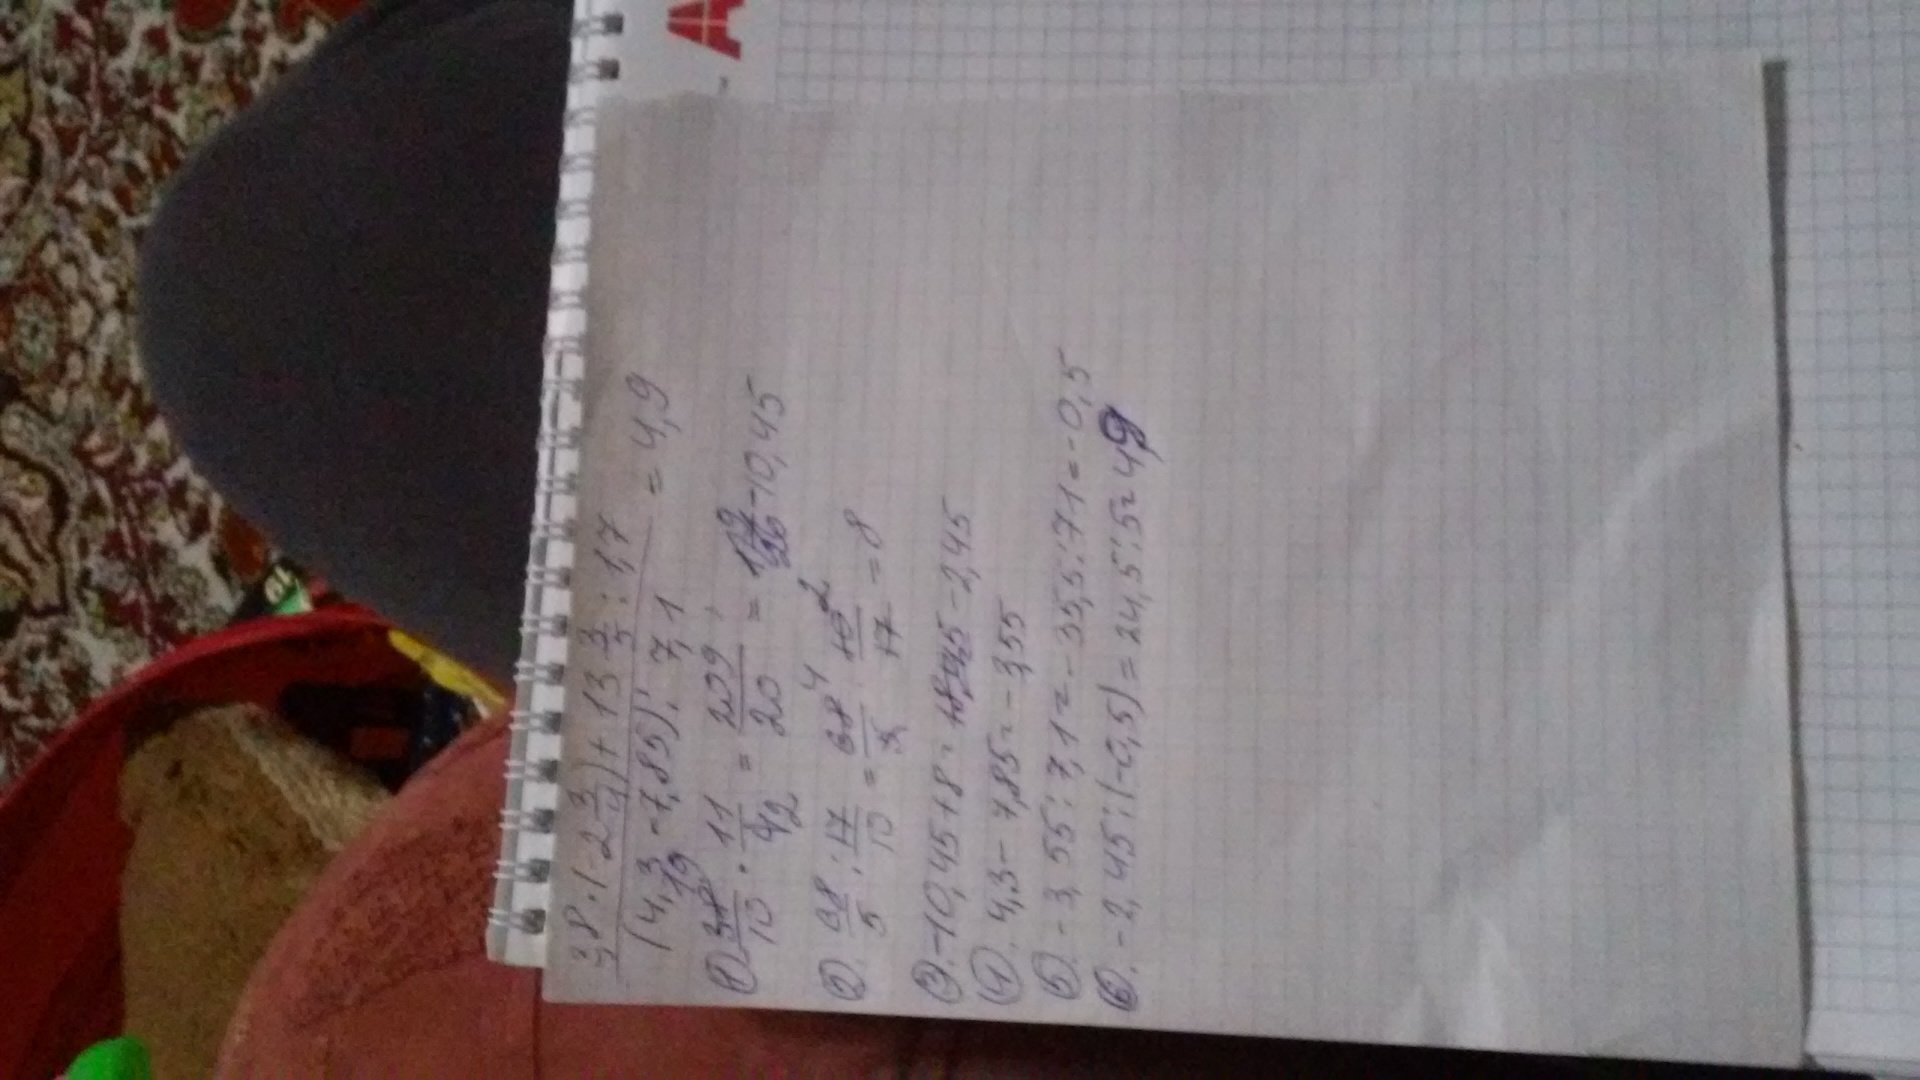 A
3,8 · (-2 3/4) + 13 3/5 : 1,7
(4,3 - 7,85) : 7,1 = 4,9
①. 38 19/10 · 11/4 2 = 209/20 = -10,45
②. 68/5 : 17/10 = 68 4/5 · 10 2/17 = 8
③. -10,45 + 8 = -2,45
④. 4,3 - 7,85 = -3,55
⑤. -3,55 : 7,1 = -35,5 : 71 = -0,5
⑥. -2,45 : (-0,5) = 24,5 : 5 = 4,9